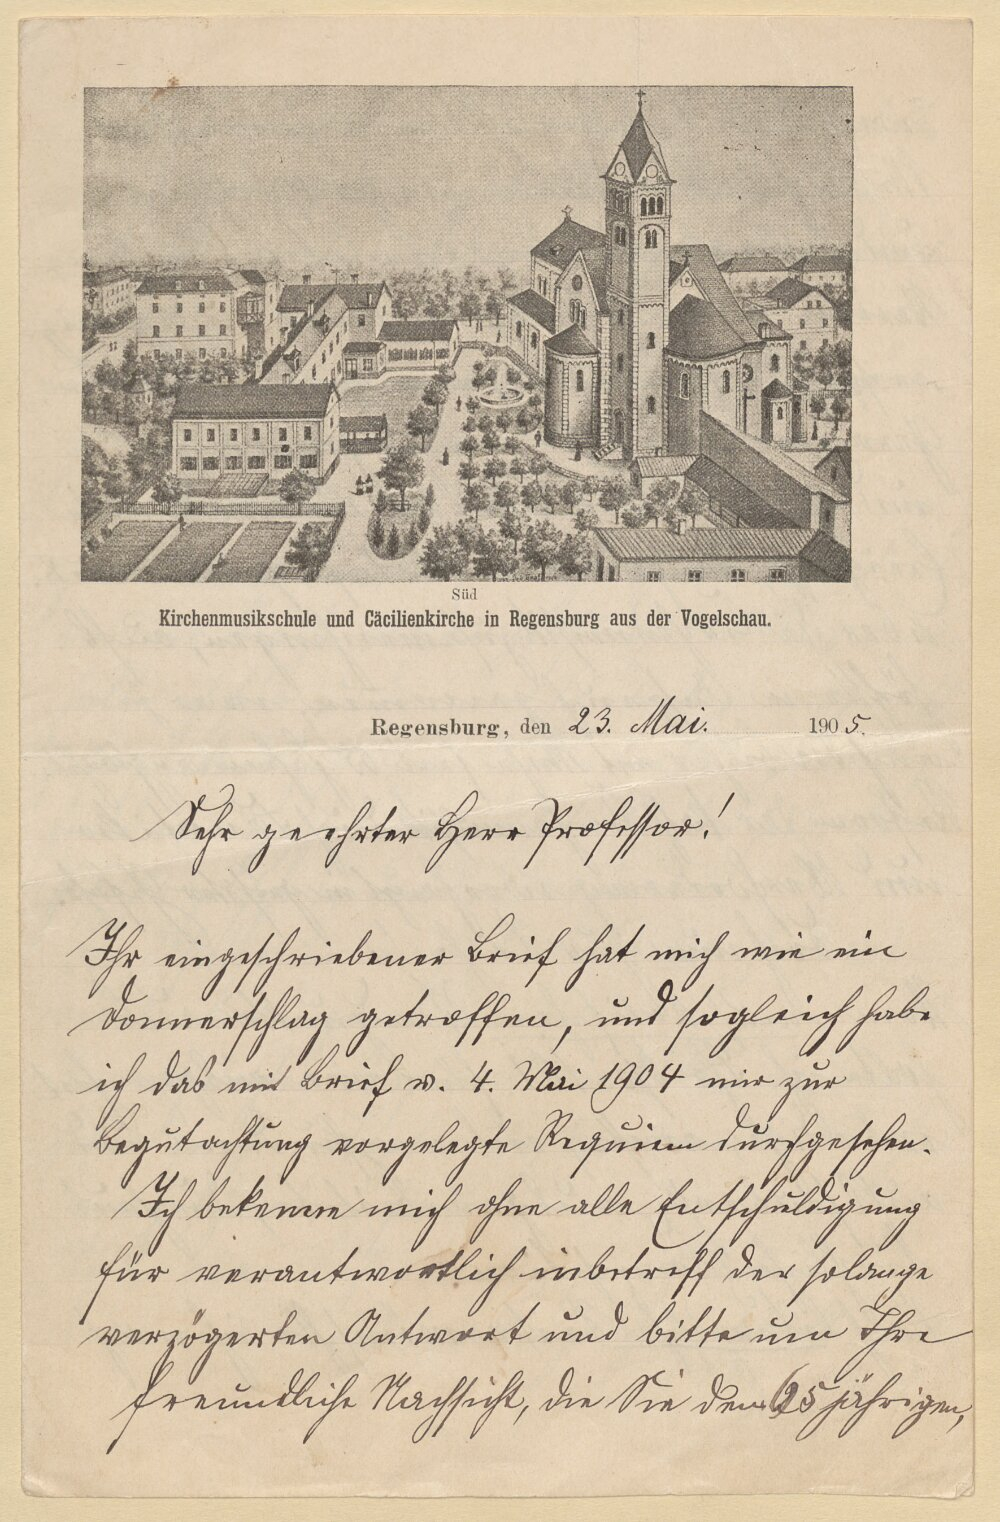 Süd
Kirchenmusikschule und Cäcilienkirche in Regensburg aus der Vogelschau.
Regensburg, den 23. Mai. 1905.
Sehr geehrter Herr Professor!
Ihr eingeschriebener Brief hat mich wie ein
Donnerschlag getroffen, und sogleich habe
ich das mit Brief v. 4. Mai 1904 mir zur
Begutachtung vorgelegte Requiem durchgesehen.
Ich bekenne mich ohne alle Entschuldigung
für verantwortlich inbetreff der solange
verzögerten Antwort und bitte um Ihre
freundliche Nachsicht, die Sie dem 65jährigen,